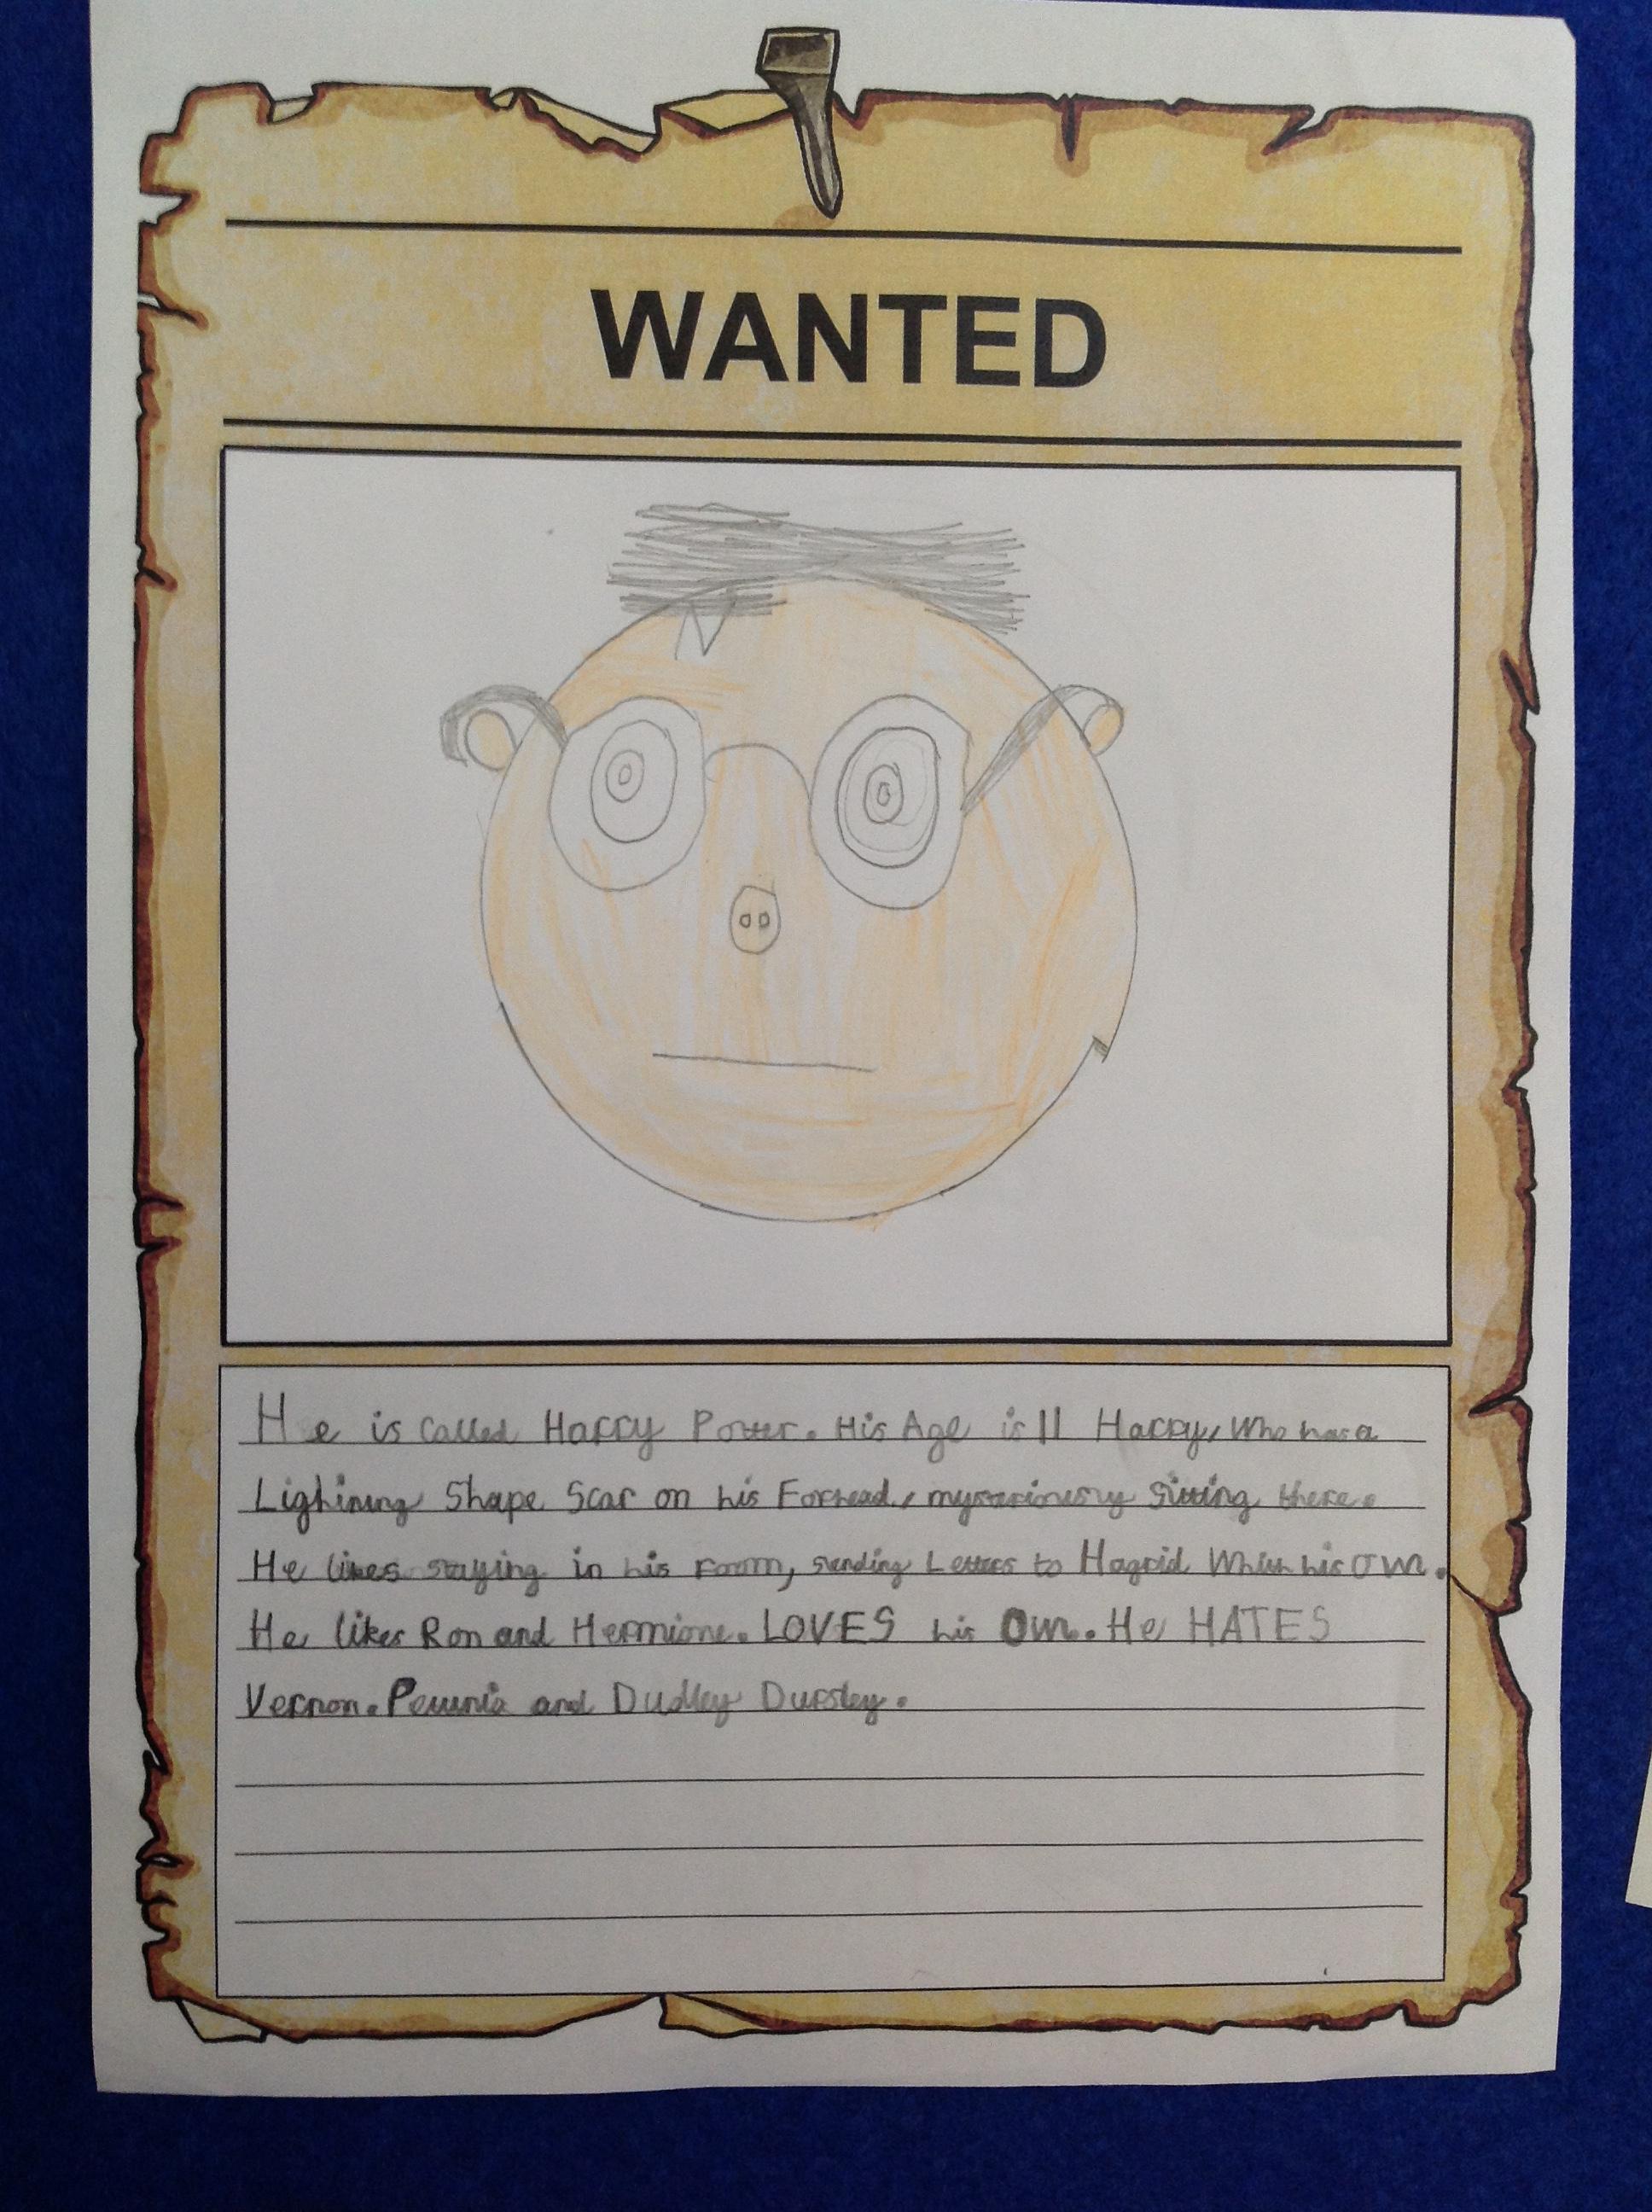 WANTED
He is called Harry Potter. His Age is 11 Harry, who has a
Lightning Shape Scar on his Forhead, mysteriously sitting there.
He likes staying in his room, sending Letters to Hagrid Whith his Owl.
He likes Ron and Hermione. LOVES his Owl. He HATES
Vernon. Petunia and Dudley Dursley.